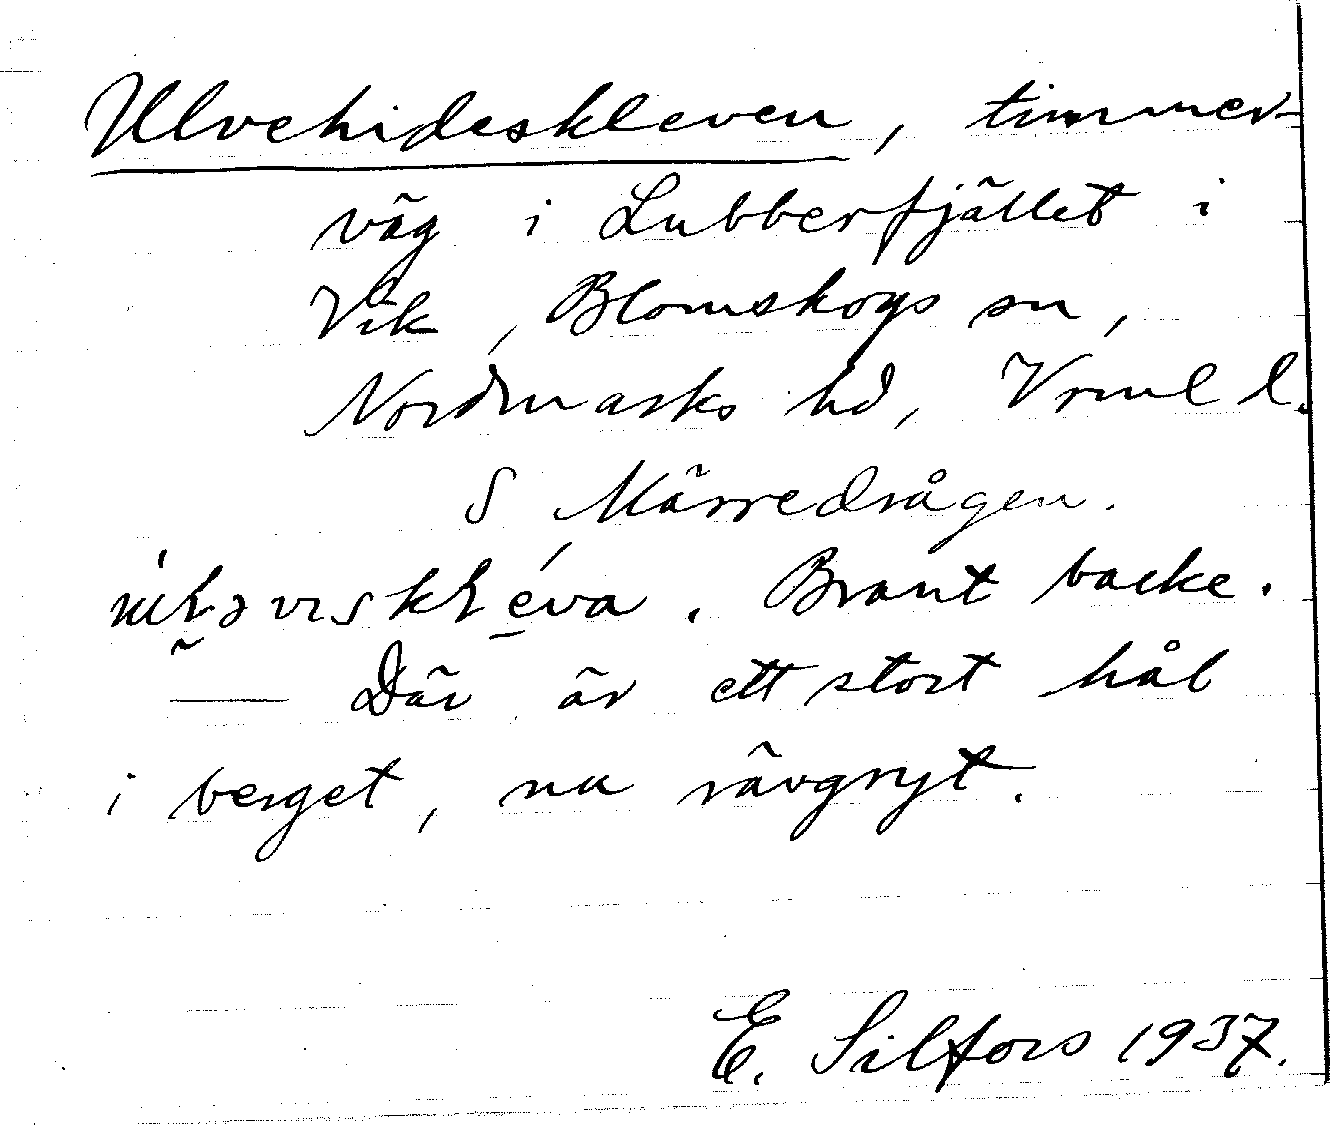 Ulvehideskleven, timmer-
väg i Lubberfjället i
Vik, Blomskogs sn,
Nordmarks hd, Vrml l.
S Märredrågen.
. Brant backe.
— Där är ett stort hål
i berget, nu rävgryt.
E. Silfors 1937.